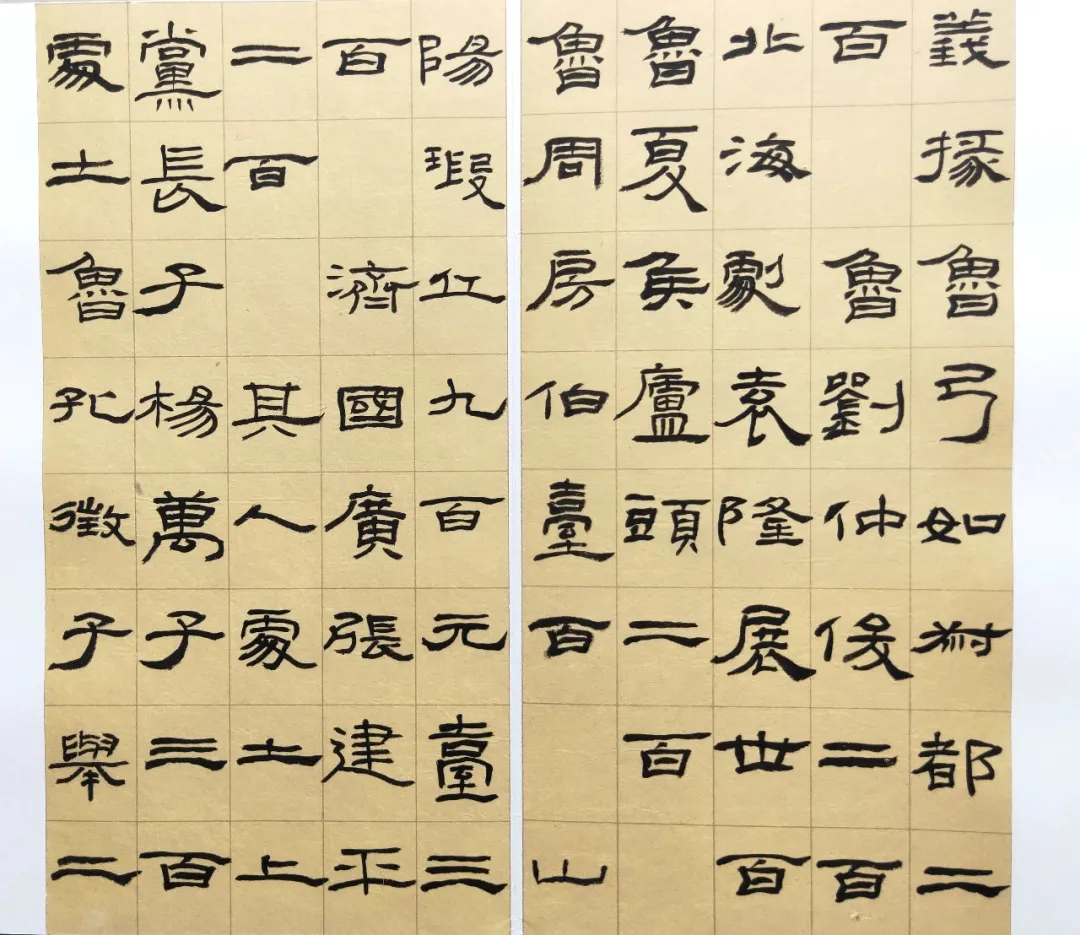 義掾魯弓如叔都二
百 魯劉仲俊二百
北海劇袁隆展世百
魯夏侯廬頭二百
魯周房伯臺百 山
陽瑕丘九百元臺三
百 濟國廣張建平
二百 其人處士上
黨長子楊萬子三百
處士魯孔徵子舉二